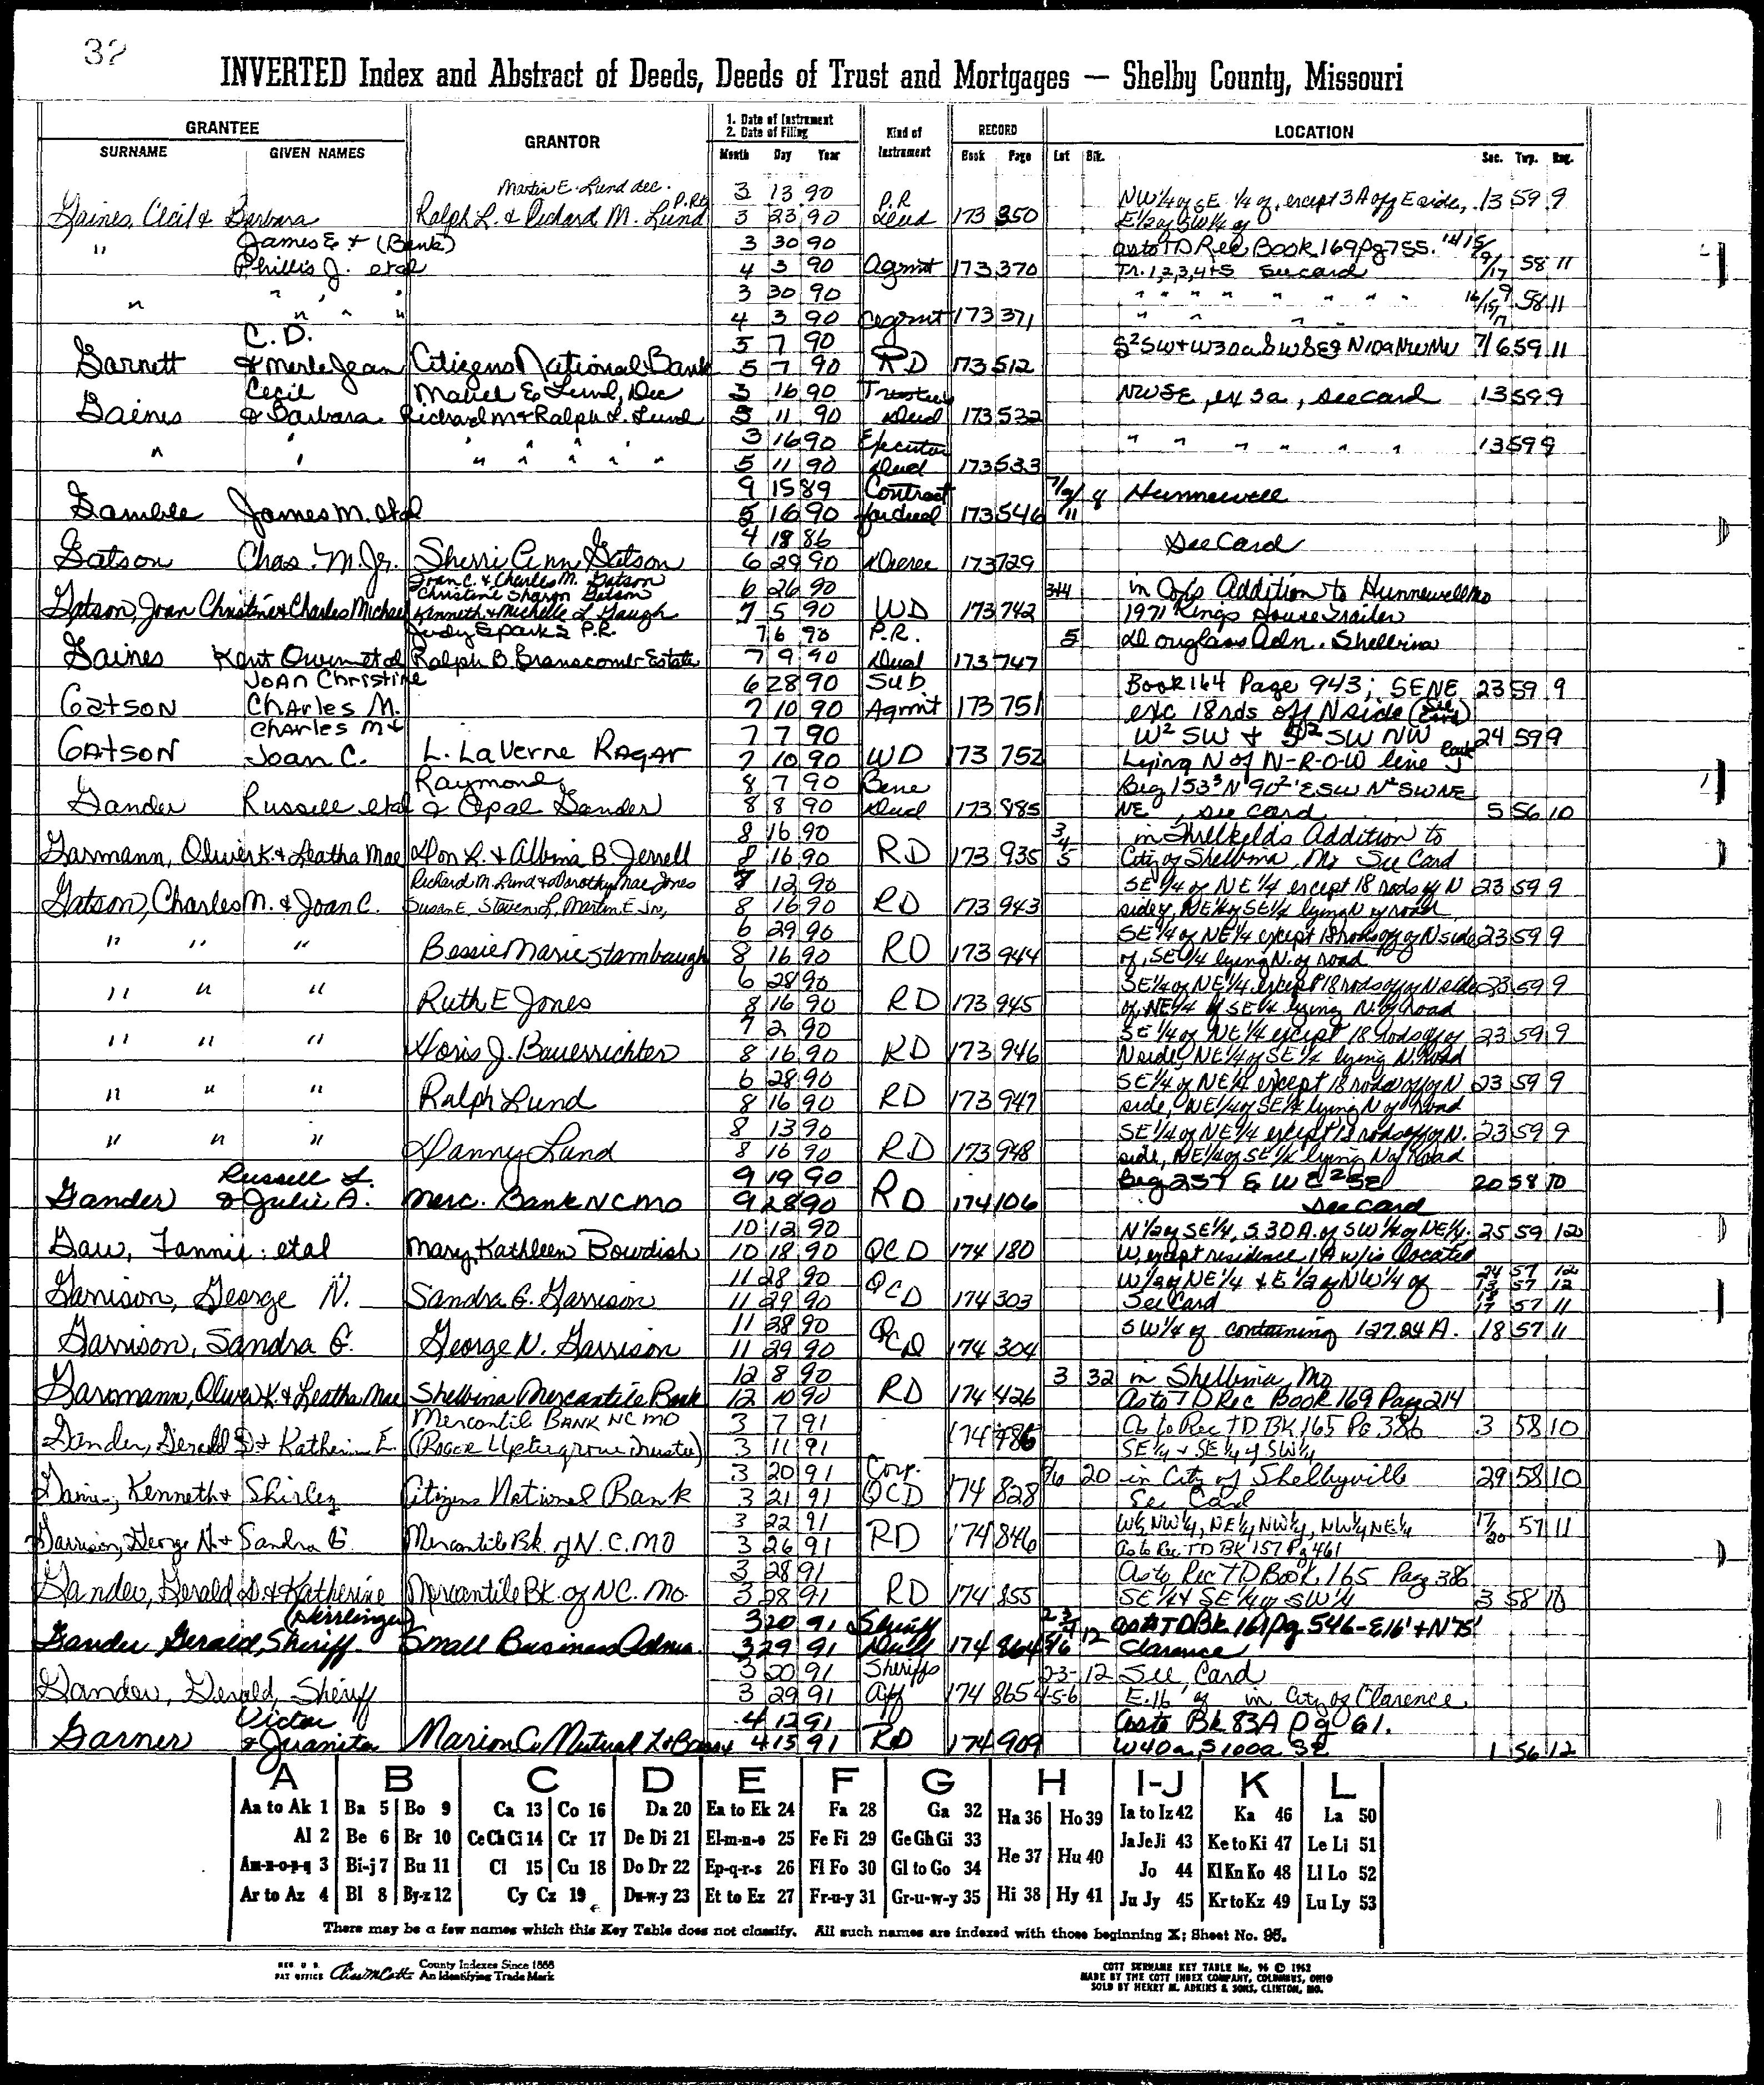 32
INVERTED Index and Abstract of Deeds, Deeds of Trust and Mortgages — Shelby County, Missouri
GRANTEE GRANTOR 1. Date of Instrument 2. Date of Filing Kind of Instrument RECORD LOCATION
SURNAME GIVEN NAMES Month Day Year Book Page Lot Blk. Sec. Twp. Rng.
Martin E. Lund dec. P.R's 3 13 90 P.R NW 1/4 of SE 1/4 of, except 3A off E side, 13 59 9
Gaines, Cecil & Barbara Ralph L. & Richard M. Lund 3 23 90 Deed 173 350 E 1/2 of SW 1/4 of
" James E & (Bank) 3 30 90 as to TD Rec Book 169 Pg 755.
Phillis J. etal 4 3 90 Agmt 173 370 Tr. 1,2,3,4+5 see card 58 11
" " " " 3 30 90 " " " " " " " " 58 11
" " " 4 3 90 Agmt 173 371 " " " "
C. D. 5 7 90 S2SW+W30aSWSE9 N10aNWNW 7/6 59 11
Garnett & Merle Jean Citizens National Bank 5 7 90 RD 173 512
Cecil Mabel E Lund, Dec 3 16 90 Trustees NWSE, ex 3a, see card 13 59 9
Gaines & Barbara Richard M & Ralph L. Lund 5 11 90 Deed 173 532
" " " " " " " 3 16 90 Executor " " " " " " 13 59 9
5 11 90 Deed 173 533
9 15 89 Contract 7/9/ 8 Hunnewell
Gamble James M. etal 5 16 90 for deed 173 546 11
4 18 86 See Card
Gatson Chas. M. Jr. Sherri Ann Gatson 6 29 90 Decree 173 729
Joan C. & Charles M. Gatson
Christine Sharon Gatson 6 26 90 3+4 in Addition to Hunnewell Mo
Gatson, Joan Christine & Charles Michael Kenneth & Michelle L Gaugh 7 5 90 WD 173 742 1971 Kings House Trailer
Judy Sparks P.R. 7 6 90 P.R. 5 Douglass Adn. Shelbina
Gaines Kent Owen etal Ralph B. Branscomb Estate 7 9 90 Deed 173 747
Joan Christine 6 28 90 Sub Book 164 Page 943; SENE 23 59 9
Gatson Charles M. 7 10 90 Agmt 173 751 exc 18rds off N side (See Card)
Charles M & 7 7 90 W2 SW & S2 SW NW 24 59 9
Gatson Joan C. L. LaVerne Ragar 7 10 90 WD 173 752 Lying N of N-R-O-W line
Raymond 8 7 90 Bene Beg 1533 N 902' E SW N2 SWNE
Gander Russell etal & Opal Gander 8 8 90 Deed 173 885 NE, see card 5 56 10
8 16 90 3 4 in Threlkeld's Addition to
Garmann, Oliver K & Leatha Mae Don L. & Albina B. Jerrell 8 16 90 RD 173 935 5 City of Shelbina, Mo See Card
Richard M. Lund & Dorothy Mae Jones 7 12 90 SE 1/4 of NE 1/4 except 18 rods of N 23 59 9
Gatson, Charles M. & Joan C. Susan E, Steven L, Martin E Jr, 8 16 90 RD 173 943 side of, NE 1/4 of SE 1/4 lying N of road
" " " 6 29 90 SE 1/4 of NE 1/4 except 18 rods off of N side 23 59 9
Bessie Marie Stambaugh 8 16 90 RD 173 944 of, SE 1/4 lying N. of road
" " " 6 28 90 SE 1/4 of NE 1/4 except 18 rods off of N side 23 59 9
Ruth E Jones 8 16 90 RD 173 945 of, NE 1/4 of SE 1/4 lying N. of Road
" " " 7 2 90 SE 1/4 of NE 1/4 except 18 rods off of 23 59 9
Doris J. Bauerrichter 8 16 90 RD 173 946 N side, NE 1/4 of SE 1/4 lying N. Road
" " " 6 28 90 SE 1/4 of NE 1/4 except 18 rods off of N 23 59 9
Ralph Lund 8 16 90 RD 173 947 side, NE 1/4 of SE 1/4 lying N of Road
" " " 8 13 90 SE 1/4 of NE 1/4 except 18 rods off of N. 23 59 9
Danny Lund 8 16 90 RD 173 948 side, NE 1/4 of SE 1/4 lying N of Road
Russell L. 9 19 90 Beg 257 E W E2 SE 20 58 10
Gander & Julie A. Merc. Bank NC MO 9 28 90 RD 174 106 See card
10 12 90 N 1/2 of SE 1/4, S 30 A. of SW 1/4 of NE 1/4. 25 59 12
Gaw, Fannie: etal Mary Kathleen Bowdish 10 18 90 QCD 174 180 W, except residence 1A w/is located
11 28 90 W 1/2 of NE 1/4 & E 1/2 of NW 1/4 of 24 57 12 13 57 12
Garrison, George N. Sandra G. Garrison 11 29 90 QCD 174 303 See Card 18 17 57 11
11 28 90 SW 1/4 of containing 127.24 A. 18 57 11
Garrison, Sandra G. George N. Garrison 11 29 90 QCD 174 304
12 8 90 3 32 in Shelbina, Mo
Garmann, Oliver K. & Leatha Mae Shelbina Mercantile Bank 12 10 90 RD 174 426 As to TD Rec Book 169 Page 214
Mercantile Bank NC MO 3 7 91 As to Rec TD BK 165 PG 386 3 58 10
Gander, Gerald D. & Katherine E. (Roger Uptergrove Trustee) 3 11 91 174 786 SE 1/4 & SE 1/4 of SW 1/4
3 20 91 Corp. 5/6 20 in City of Shelbyville 29 58 10
Gaines, Kenneth & Shirley Citizens National Bank 3 21 91 QCD 174 828 See Card
3 22 91 W 1/2 NW 1/4, NE 1/4 NW 1/4, NW 1/4 NE 1/4 17/20 57 11
Garrison, George N. & Sandra G. Mercantile Bk. of N.C. MO 3 26 91 RD 174 846 As to Rec TD BK 157 Pg 461
3 28 91 As to Rec TD Book 165 Page 386
Gander, Gerald D. & Katherine Mercantile Bk. of NC. Mo. 3 28 91 RD 174 855 SE 1/4 & SE 1/4 of SW 1/4 3 58 10
3 20 91 Sheriff 2 3/4 as to TD Bk 161 Pg 546 - E16' + N75'
Gander Gerald, Sheriff Small Business Adms. 3 29 91 Deed 174 864 5/6 12 Clarence
3 20 91 Sheriffs 2-3- 12 See Card
Gander, Gerald, Sheriff 3 29 91 Aff 174 865 4-5-6 E. 16' of in City of Clarence
Victor 4 12 91 as to Bk 83A Pg 61.
Garner & Juanita Marion Co Mutual 4 15 91 RD 174 909 W40a, S100a SE 1 56 12
A B C D E F G H I-J K L
Aa to Ak 1 Ba 5 Bo 9 Ca 13 Co 16 Da 20 Ea to Ek 24 Fa 28 Ga 32 Ha 36 Ho 39 Ia to Iz 42 Ka 46 La 50
Al 2 Be 6 Br 10 Ce Ch Ci 14 Cr 17 De Di 21 El-m-n-o 25 Fe Fi 29 Ge Gh Gi 33 He 37 Hu 40 Ja Je Ji 43 Ke to Ki 47 Le Li 51
Am-n-o-p-q 3 Bi-j 7 Bu 11 Cl 15 Cu 18 Do Dr 22 Ep-q-r-s 26 Fl Fo 30 Gl to Go 34 Jo 44 Kl Kn Ko 48 Ll Lo 52
Ar to Az 4 Bl 8 By-z 12 Cy Cz 19 Du-w-y 23 Et to Ez 27 Fr-u-y 31 Gr-u-w-y 35 Hi 38 Hy 41 Ju Jy 45 Kr to Kz 49 Lu Ly 53
There may be a few names which this Key Table does not classify. All such names are indexed with those beginning X; Sheet No. 95.
REG. U. S. PAT OFFICE County Indexes Since 1888 An Identifying Trade Mark
COTT SURNAME KEY TABLE No. 96 © 1962
MADE BY THE COTT INDEX COMPANY, COLUMBUS, OHIO
SOLD BY HENRY M. ADKINS & SONS, CLINTON, MO.